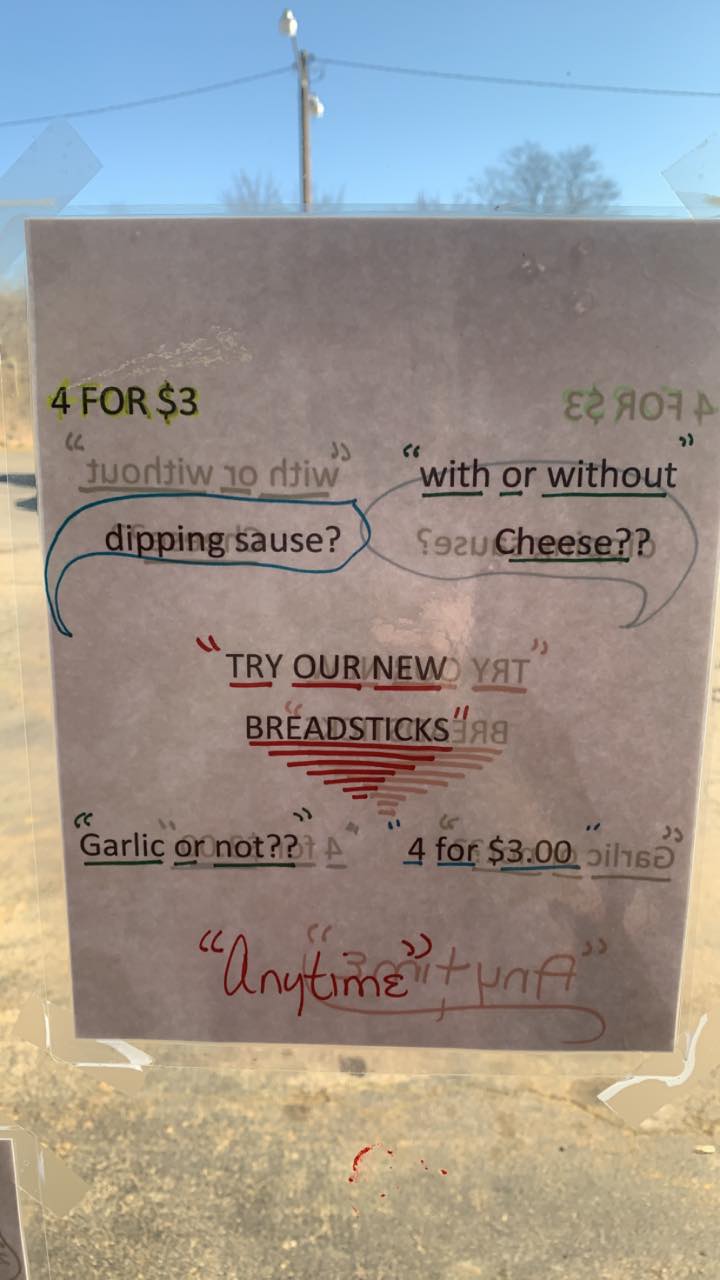 4 FOR $3
"with or without
Cheese??"
dipping sause?
"TRY OUR NEW
BREADSTICKS"
"Garlic or not??"
"4 for $3.00"
"Anytime"